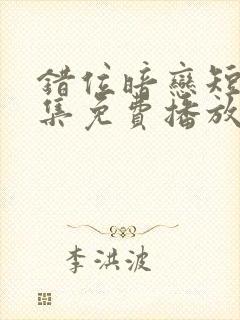 錯位暗戀短
集免費播放
李洪波